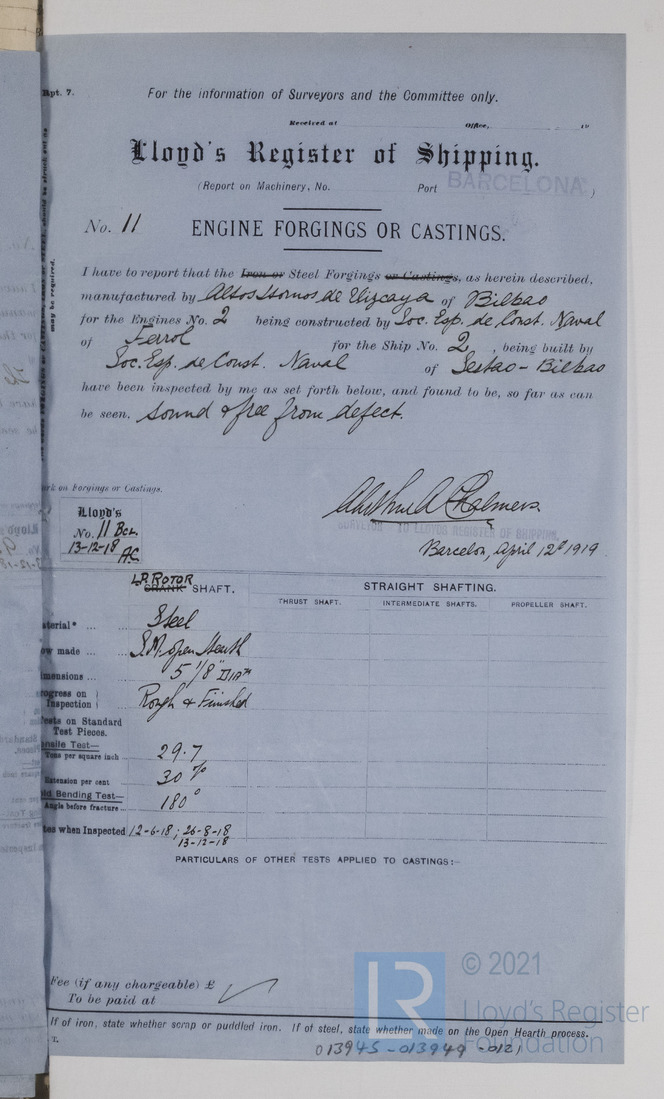 Rpt. 7.
For the information of Surveyors and the Committee only.
Received at Office, 19
Lloyd's Register of Shipping.
(Report on Machinery, No. Port BARCELONA )
No. 11 ENGINE FORGINGS OR CASTINGS.
I have to report that the Iron or Steel Forgings or Castings, as herein described,
manufactured by Altos Hornos de Vizcaya of Bilbao
for the Engines No. 2 being constructed by Soc. Esp. de Const. Naval
of Ferrol for the Ship No. 2, being built by
Soc. Esp. de Const. Naval of Sestao - Bilbao
have been inspected by me as set forth below, and found to be, so far as can
be seen, sound & free from defect.
may be required.
ark on Forgings or Castings.
Lloyd's
No. 11 Bcl.
13-12-18
AC
Chalmers
SURVEYOR TO LLOYDS REGISTER OF SHIPPING.
Barcelon, April 12th 1919
L.P. ROTOR
CRANK SHAFT.
STRAIGHT SHAFTING.
THRUST SHAFT. INTERMEDIATE SHAFTS. PROPELLER SHAFT.
aterial* ... Steel
ow made ... S.M. open Hearth
imensions ... 5 1/8" DIAM
rogress on Inspection Rough & Finished
ests on Standard
Test Pieces.
nsile Test—
Tons per square inch 29.7
Extension per cent 30 %
ld Bending Test—
Angle before fracture ... 180°
tes when Inspected 12-6-18; 26-8-18
13-12-18
PARTICULARS OF OTHER TESTS APPLIED TO CASTINGS:—
Fee (if any chargeable) £
To be paid at
If of iron, state whether scrap or puddled iron. If of steel, state whether made on the Open Hearth process.
T.
013945-013949-0121
LR
© 2021
Lloyd's Register
Foundation